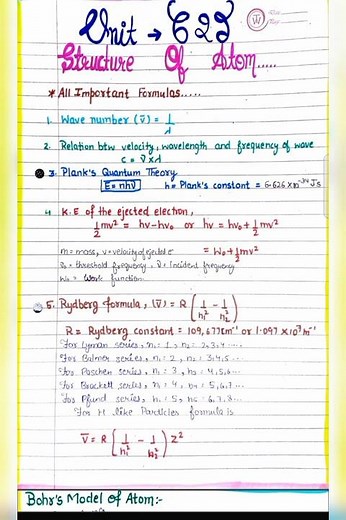 Unit → (2)
Structure Of Atom.....
* All Important Formulas.....
1. Wave number (ν̄) = 1/λ
2. Relation btw velocity, wavelength and frequency of wave
c = ν × λ
3. Plank's Quantum Theory
E = nhν h = Plank's constant = 6.626 × 10⁻³⁴ Js
4 K.E of the ejected electron,
1/2 mv² = hν - hν₀ or hν = hν₀ + 1/2 mv²
m = mass, v = velocity of ejected e = W₀ + 1/2 mv²
ν₀ = threshold frequency, ν = Incident frequency
W₀ = Work function
5. Rydberg formula, (ν̄) = R [1/n₁² - 1/n₂²]
R = Rydberg constant = 109,677 cm⁻¹ or 1.097 × 10⁷ m⁻¹
For Lyman series, n₁ = 1, n₂ = 2,3,4....
For Balmer series, n₁ = 2, n₂ = 3,4,5....
For Paschen series, n₁ = 3, n₂ = 4,5,6....
For Brackett series, n₁ = 4, n₂ = 5,6,7...
For Pfund series, n₁ = 5, n₂ = 6,7,8...
For H like Particles formula is
ν̄ = R [1/n₁² - 1/n₂²] Z²
Bohr's Model of Atom:-